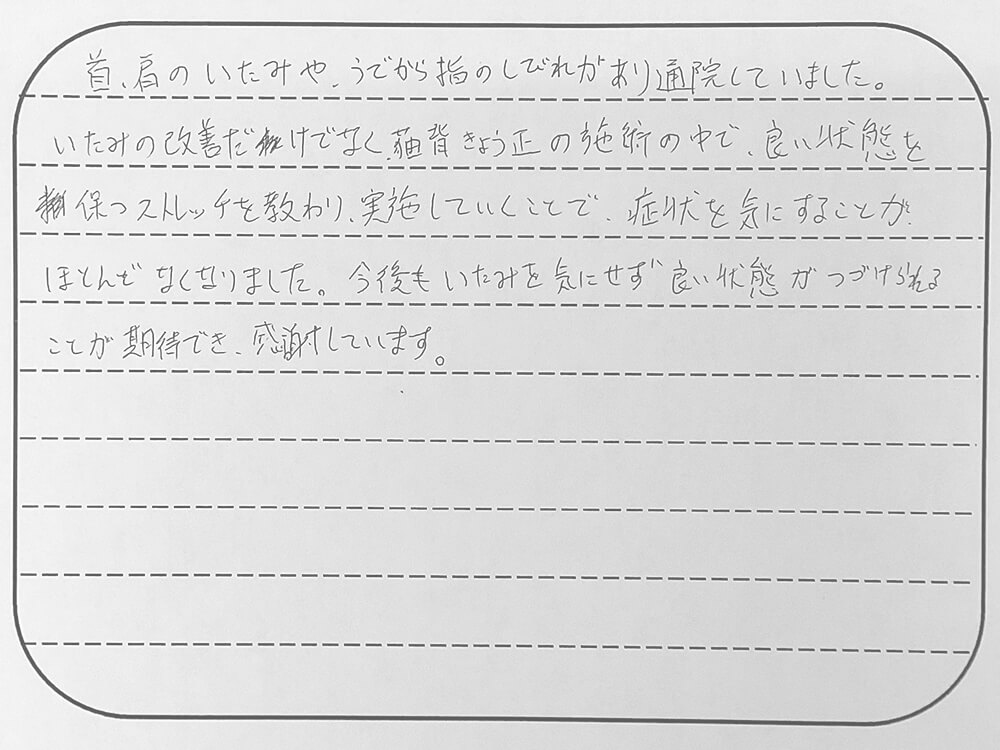 首、肩のいたみや、うでから指のしびれがあり通院していました。
いたみの改善だけでなく、猫背きょう正の施術の中で、良い状態を
保つストレッチを教わり、実施していくことで、症状を気にすることが
ほとんどなくなりました。今後もいたみを気にせず良い状態がつづけられる
ことが期待でき、感謝しています。